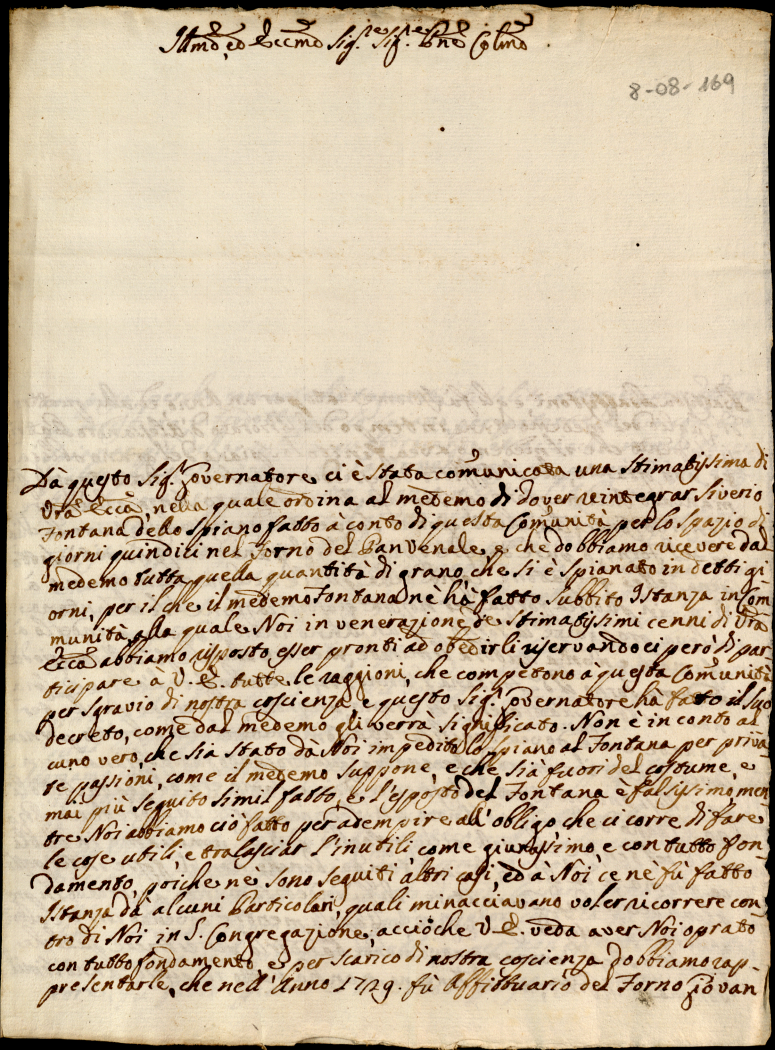 Illmo, ed Eccmo Sig.re Sig.re Pne Colmo
8-08-169
Dà questo Sig.r Governatore ci è stata comunicata una stimatissima di
Vra Eccà, nella quale ordina al medemo di dover reintegrar Siverio
Fontana dello spiano fatto à conto di questa Comunità per lo spazio di
giorni quindici nel Forno del Panvenale, e che dobbiamo ricevere dal
medemo tutta quella quantità di grano, che si è spianato in detti gi
orni, per il che il medemo Fontana nè hà fatto subbito Istanza in Com
munità, alla quale Noi in venerazione de stimatissimi cenni di Vra
Eccà abbiamo risposto esser pronti ad obedirli riservandoci però di par
ticipare à V. E. tutte le raggioni, che competono à questa Comunità
per sgravio di nostra coscienza, e questo Sig.r Governatore hà fatto il suo
decreto, come dal medemo gli verrà significato. Non è in conto al
cuno vero, che sia stato dà Noi impedito lo spiano al Fontana per priva
te passioni, come il medemo suppone, e che sià fuori del costume, e
mai più seguito simil fatto, e l'esposto del Fontana è falsissimo, men
tre Noi abbiamo ciò fatto per adempire all'obligo che ci corre di fare
le cose utili, e tralasciar l'inutili, come giurassimo, e con tutto fon
damento, poiche nè sono seguiti altri casi, ed à Noi ce nè fù fatto
Istanza dà alcuni Particolari, quali minacciavano voler ricorrere con
tro di Noi in S. Congregazione, acciòche V. E. veda aver Noi oprato
con tutto fondamento, e per scarico di nostra coscienza dobbiamo rap
presentarle, che nell'Anno 1729. fù Affittuario del Forno Giovan